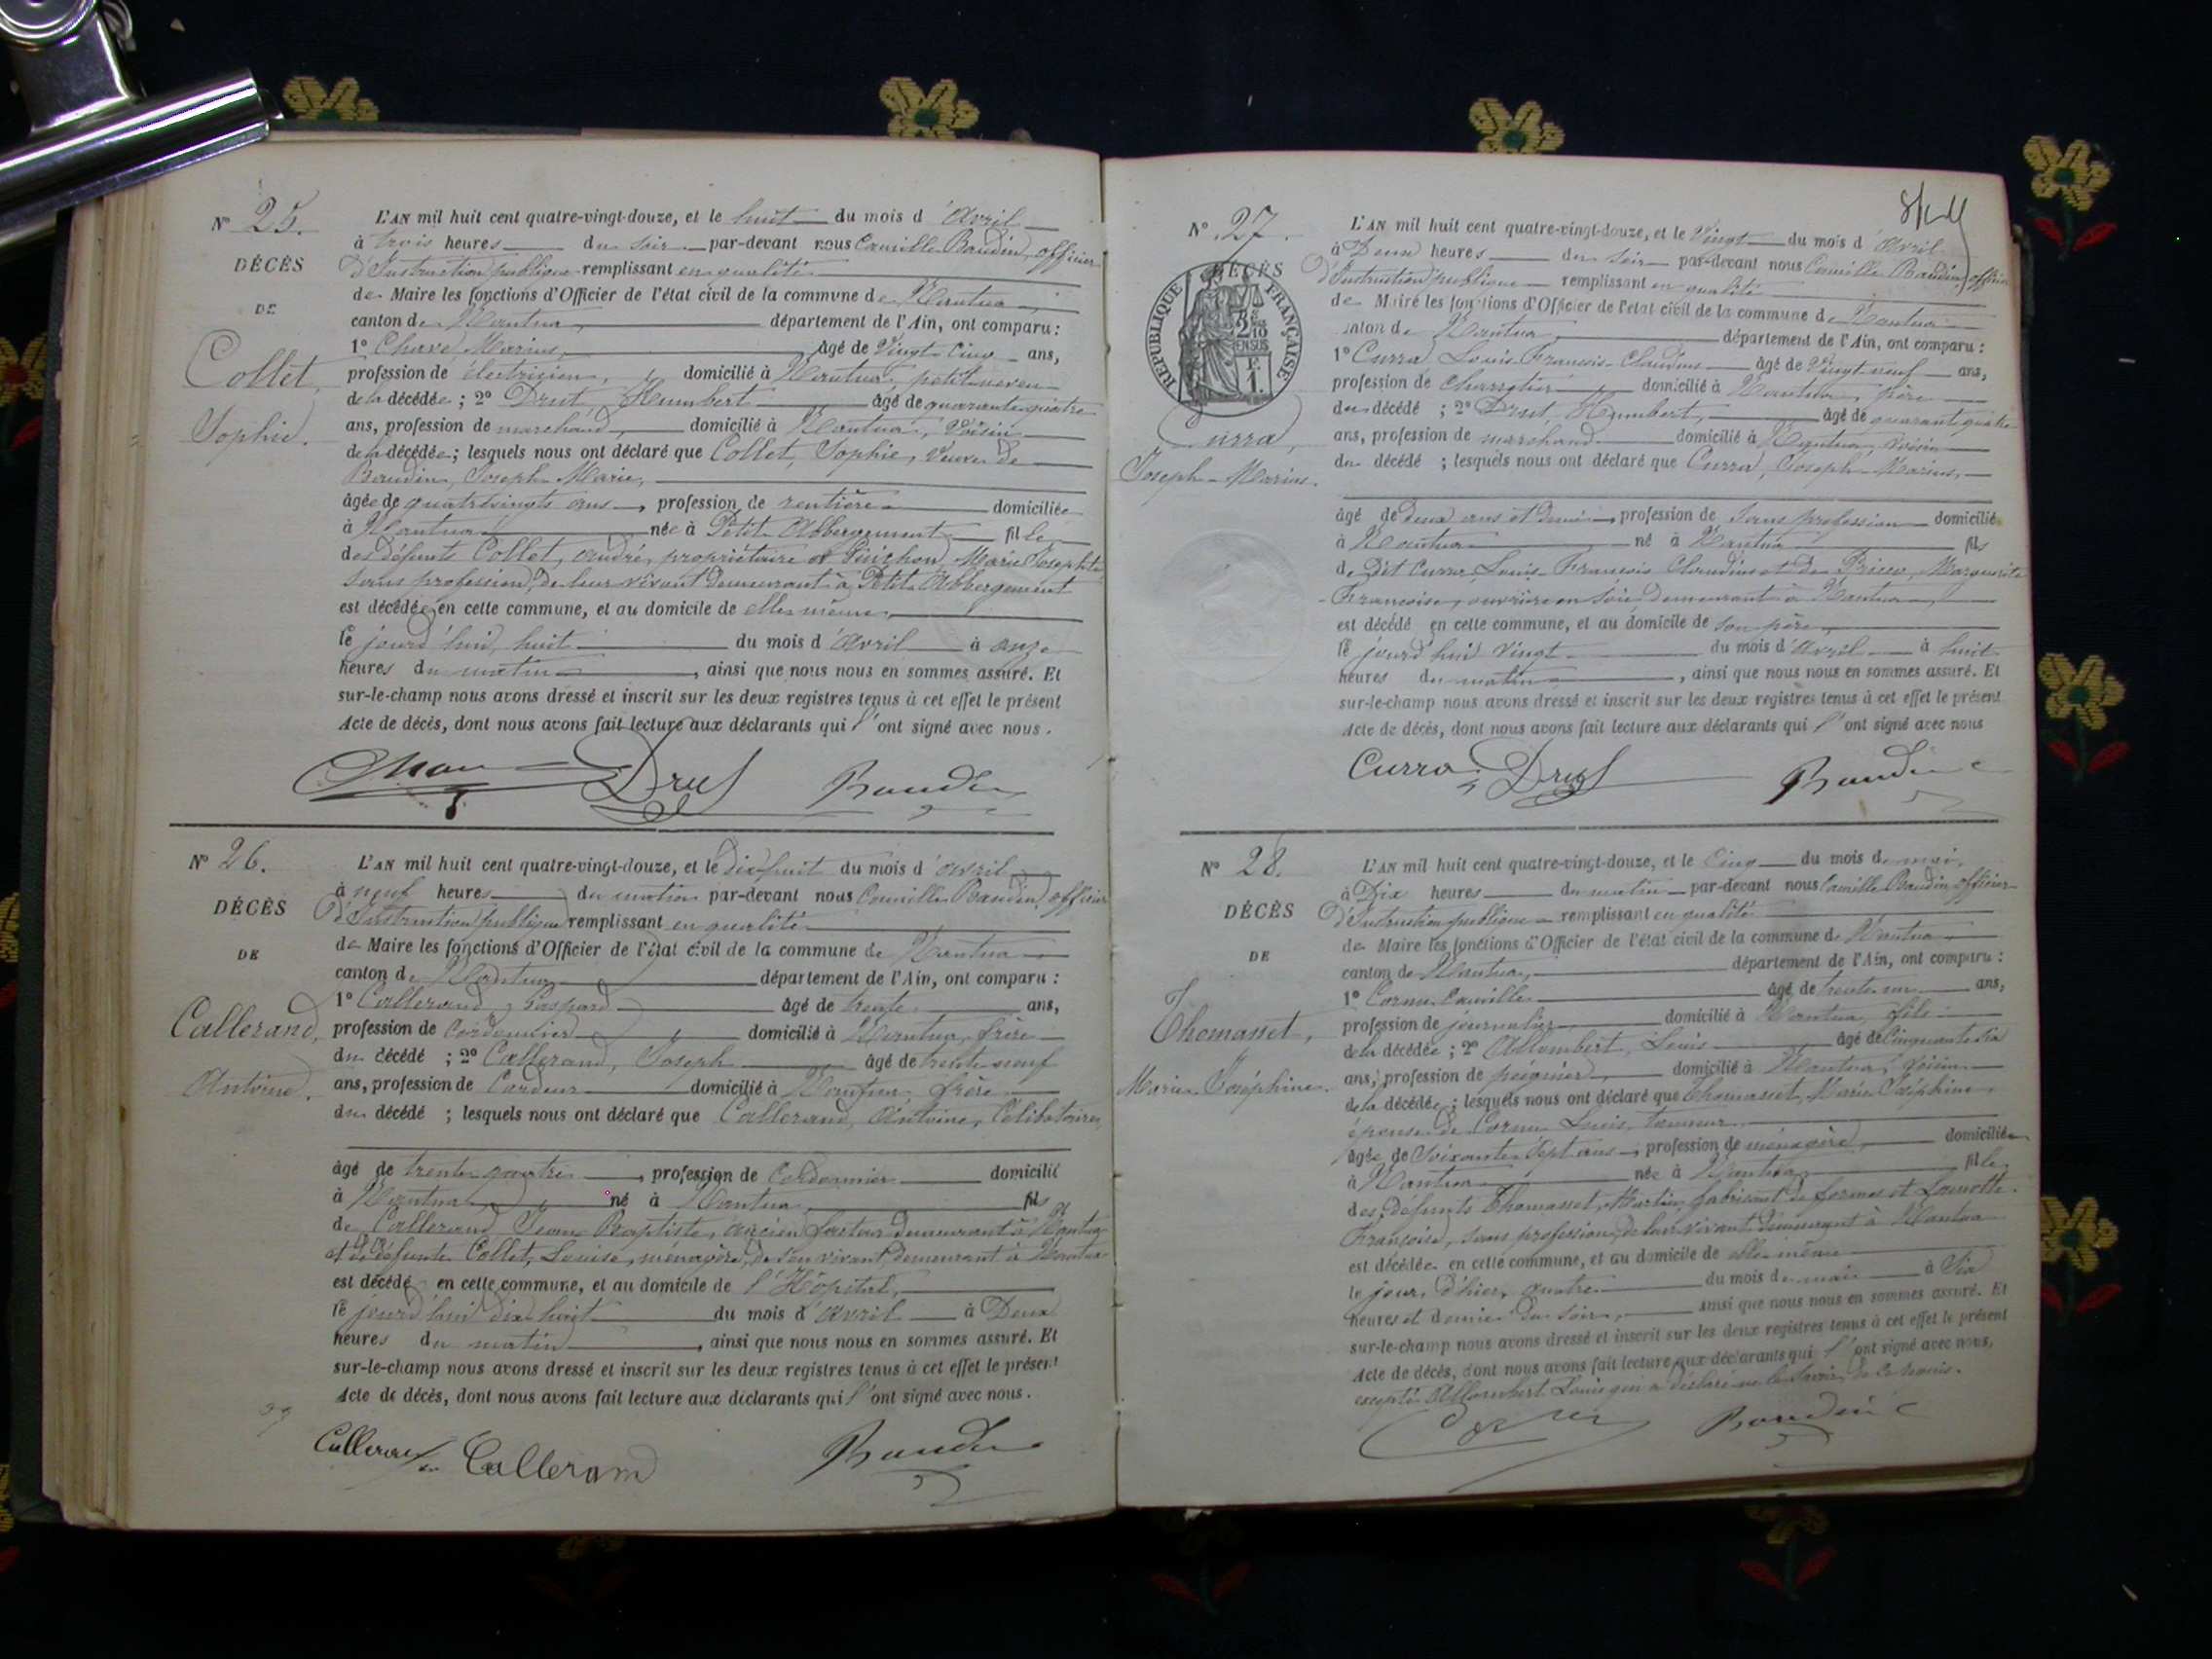 N° 25.
DÉCÈS
DE
Collet,
Sophie.
L'AN mil huit cent quatre-vingt-douze, et le huit du mois d'Avril
à trois heures du soir par-devant nous Camille Baudin, officier
d'Instruction publique remplissant en qualité
de Maire les fonctions d'Officier de l'état civil de la commune de Nantua,
canton de Nantua, département de l'Ain, ont comparu :
1° Chave, Marius, âgé de Vingt-Cinq ans,
profession de électricien, domicilié à Nantua, petit neveu
de la décédée ; 2° Drut, Humbert âgé de quarante quatre
ans, profession de marchand, domicilié à Nantua, Voisin
de la décédée ; lesquels nous ont déclaré que Collet, Sophie, veuve de
Baudin, Joseph Marie,
âgée de quatrevingts ans, profession de rentière domiciliée
à Nantua née à Petit Abbergement fille
des défunts Collet, andré, propriétaire et Marie Josephte
sans profession, de leur vivant demeurant à Petit Abbergement
est décédée en cette commune, et au domicile de elle même,
le jourd'hui huit du mois d'Avril à onze
heures du matin, ainsi que nous nous en sommes assuré. Et
sur-le-champ nous avons dressé et inscrit sur les deux registres tenus à cet effet le présent
Acte de décès, dont nous avons fait lecture aux déclarants qui l'ont signé avec nous.
Drut Baudin
N° 26.
DÉCÈS
DE
Callerand,
Antoine.
L'AN mil huit cent quatre-vingt-douze, et le dix huit du mois d'avril
à neuf heures du matin par-devant nous Camille Baudin, officier
d'Instruction publique remplissant en qualité
de Maire les fonctions d'Officier de l'état civil de la commune de Nantua
canton de Nantua département de l'Ain, ont comparu :
1° Callerand, Gaspard âgé de trente ans,
profession de Cordonnier domicilié à Nantua, frère
du décédé ; 2° Callerand, Joseph âgé de trente neuf
ans, profession de Cardeur domicilié à Nantua, frère
du décédé ; lesquels nous ont déclaré que Callerand, Antoine, Célibataire,
âgé de trente quatre, profession de Cordonnier domicilié
à Nantua né à Nantua, fils
de Callerand, Jean Baptiste, ancien facteur demeurant à Nantua
et de défunte Collet, Louise, ménagère, de son vivant demeurant à Nantua
est décédé en cette commune, et au domicile de l'Hôpital,
le jourd'hui dix huit du mois d'Avril à Deux
heures du matin, ainsi que nous nous en sommes assuré. Et
sur-le-champ nous avons dressé et inscrit sur les deux registres tenus à cet effet le présent
Acte de décès, dont nous avons fait lecture aux déclarants qui l'ont signé avec nous.
Callerand Callerand Baudin
N° 27.
DÉCÈS
RÉPUBLIQUE FRANÇAISE
Curra,
Joseph-Marius.
L'AN mil huit cent quatre-vingt-douze, et le Vingt du mois d'Avril
à Deux heures du soir par-devant nous Camille Baudin, officier
d'Instruction publique remplissant en qualité
de Maire les fonctions d'Officier de l'état civil de la commune de Nantua
canton de Nantua département de l'Ain, ont comparu :
1° Curra, Louis-François-Claudius âgé de Vingt neuf ans,
profession de domicilié à Nantua, père
du décédé ; 2° Drut, Humbert, âgé de quarante quatre
ans, profession de marchand domicilié à Nantua, voisin
du décédé ; lesquels nous ont déclaré que Curra, Joseph-Marius,
âgé de deux ans et demi, profession de Sans profession domicilié
à Nantua né à Nantua fils
de Dit Curra, Louis-François Claudius et de Marguerite
Françoise, ouvrière en soie, demeurant à Nantua,
est décédé en cette commune, et au domicile de son père,
le jourd'hui Vingt du mois d'Avril à huit
heures du matin, ainsi que nous nous en sommes assuré. Et
sur-le-champ nous avons dressé et inscrit sur les deux registres tenus à cet effet le présent
Acte de décès, dont nous avons fait lecture aux déclarants qui l'ont signé avec nous
Curra Drut Baudin
N° 28.
DÉCÈS
DE
Thomasset,
Marie Joséphine.
L'AN mil huit cent quatre-vingt-douze, et le Cinq du mois de mai,
à Dix heures du matin par-devant nous Camille Baudin officier
d'Instruction publique remplissant en qualité
de Maire les fonctions d'Officier de l'état civil de la commune de Nantua
canton de Nantua, département de l'Ain, ont comparu :
1° Cornu, Camille âgé de trente un ans,
profession de journalier domicilié à Nantua, fils
de la décédée ; 2° Allombert, Louis âgé de Cinquante six
ans, profession de peignier domicilié à Nantua, Voisin
de la décédée ; lesquels nous ont déclaré que Thomasset, Marie Joséphine,
épouse de Cornu Louis, tanneur
âgée de Soixante Sept ans, profession de ménagère, domiciliée
à Nantua née à Nantua, fille
des défunts Thomasset, Martin, fabricant de formes et
Françoise, sans profession, de leur vivant demeurant à Nantua
est décédée en cette commune, et au domicile de elle même
le jour d'hier, quatre du mois de mai à Six
heures et demie du soir, ainsi que nous nous en sommes assuré. Et
sur-le-champ nous avons dressé et inscrit sur les deux registres tenus à cet effet le présent
Acte de décès, dont nous avons fait lecture aux déclarants qui l'ont signé avec nous,
excepté Allombert Louis qui a déclaré ne le savoir de ce requis.
Baudin